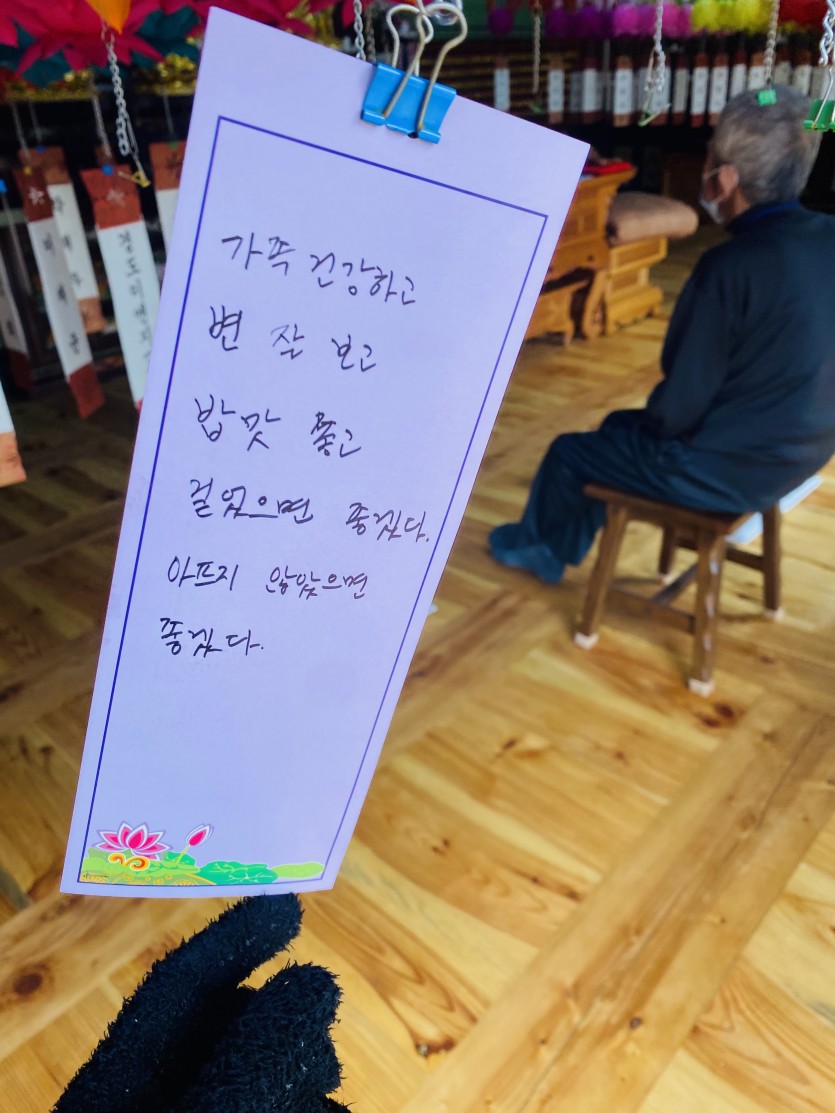 가족 건강하고
변 잘 보고
밥맛 좋고
걸었으면 좋겠다.
아프지 않았으면
좋겠다.